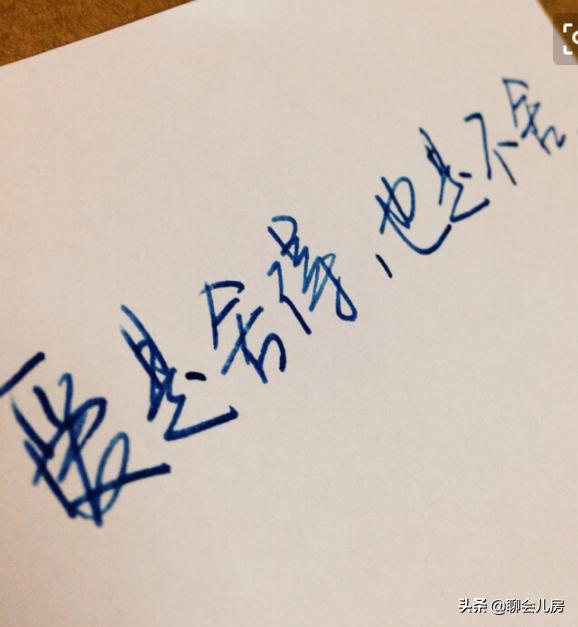 爱是舍得，也是不舍
头条 @聊会儿房